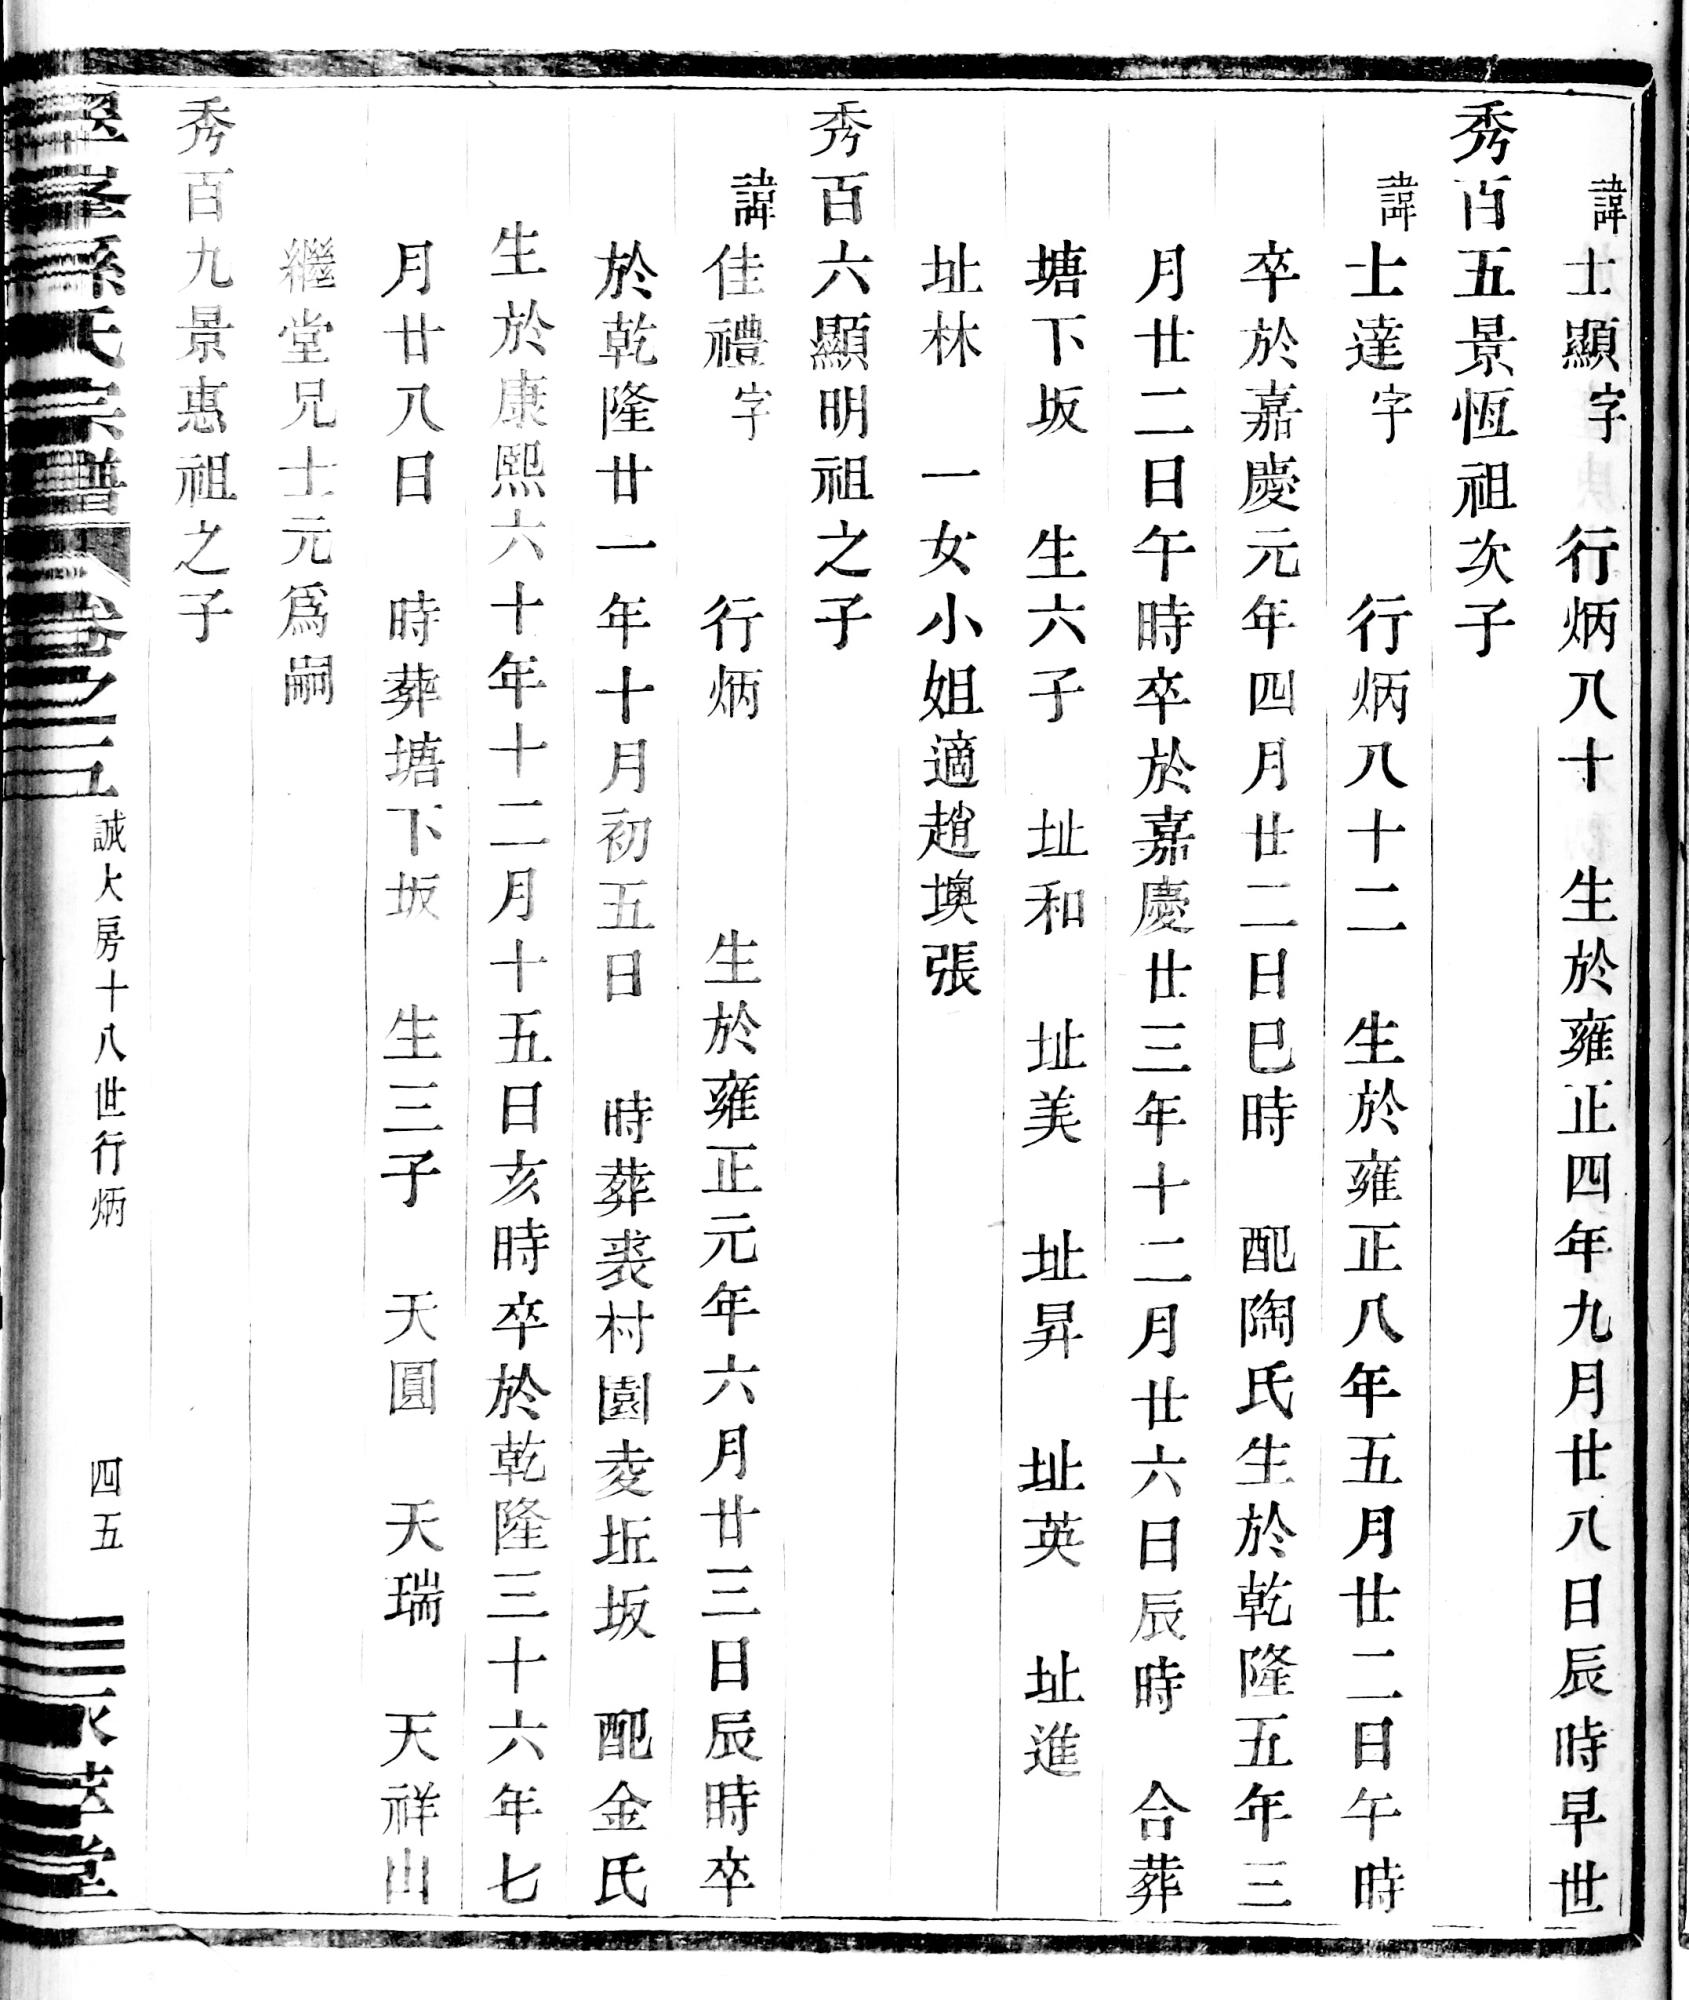 諱士顯字　行炳八十　生於雍正四年九月廿八日辰時早世
秀百五景恆祖次子
諱士達字　行炳八十二　生於雍正八年五月廿二日午時
卒於嘉慶元年四月廿二日巳時　配陶氏生於乾隆五年三
月廿二日午時卒於嘉慶廿三年十二月廿六日辰時　合葬
塘下坂　生六子　址和　址美　址昇　址英　址進
址林　一女小姐適趙墺張
秀百六顯明祖之子
諱佳禮字　行炳　生於雍正元年六月廿三日辰時卒
於乾隆廿一年十月初五日　時葬裘村園坵坂　配金氏
生於康熙六十年十二月十五日亥時卒於乾隆三十六年七
月廿八日　時葬塘下坂　生三子　天圓　天瑞　天祥出
繼堂兄士元爲嗣
秀百九景惠祖之子
孫氏宗譜　卷之三　誠大房十八世行炳　四五　堂